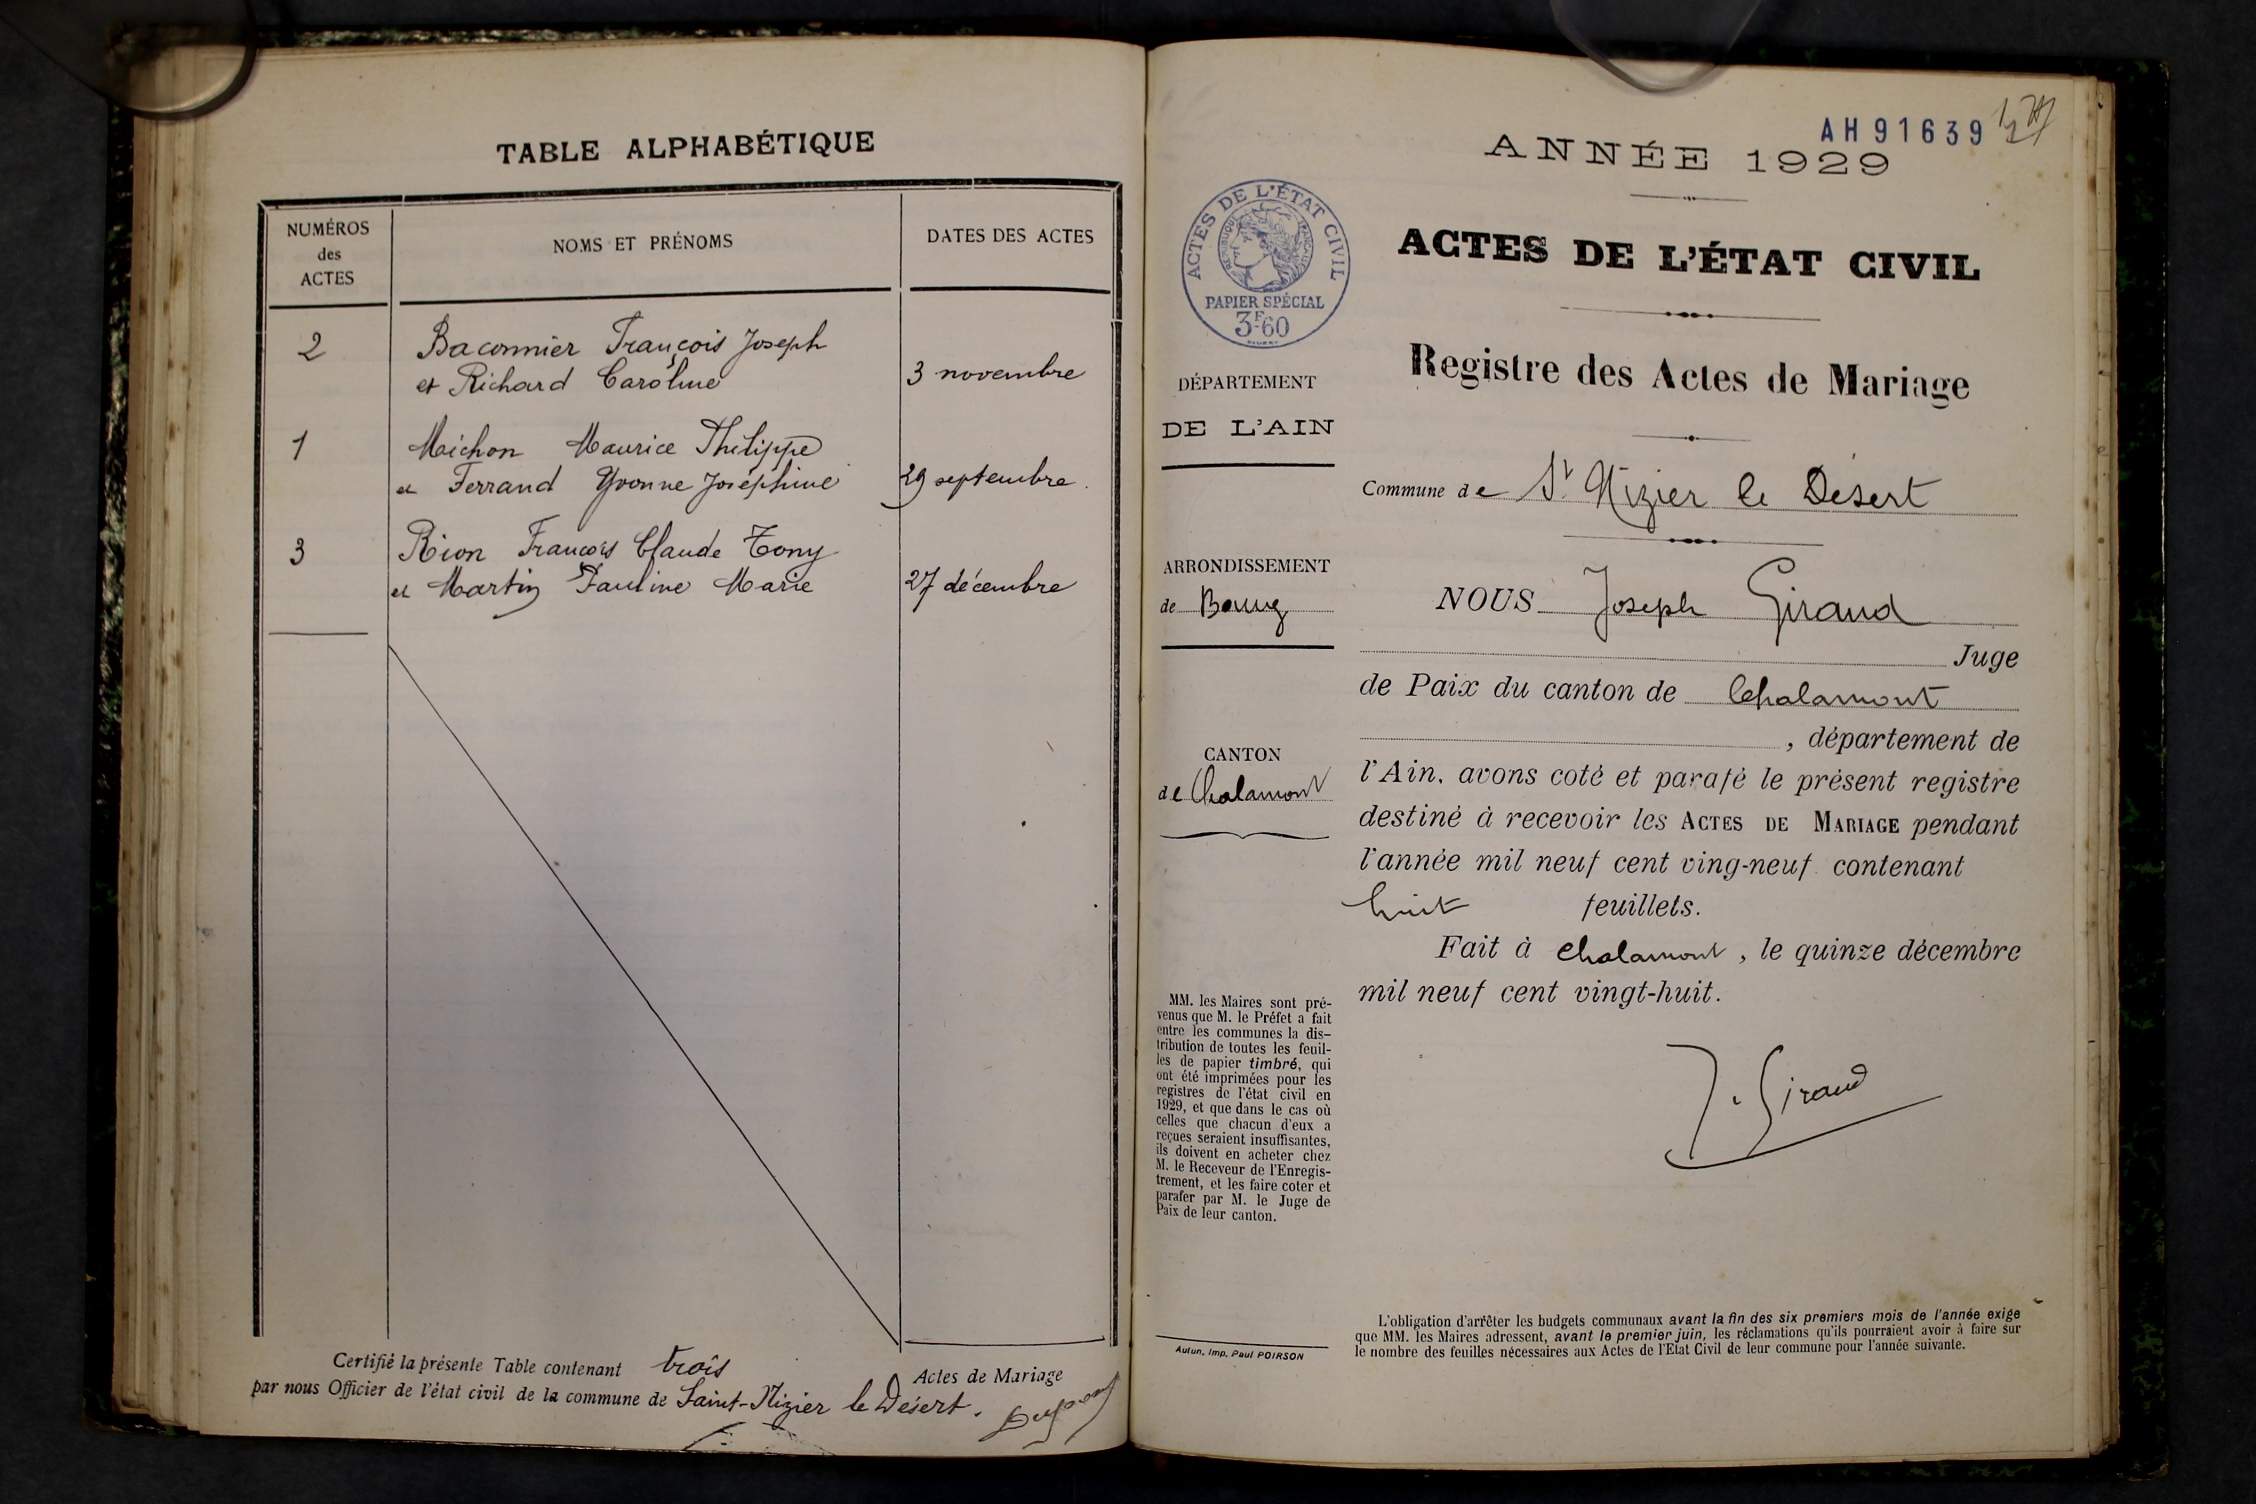 TABLE ALPHABÉTIQUE
NUMÉROS
des
ACTES
NOMS ET PRÉNOMS
DATES DES ACTES
2
Baconnier François Joseph
et Richard Caroline
3 novembre
1
Michon Maurice Philippe
et Ferrand Yvonne Joséphine
29 septembre.
3
Rion François Claude Tony
et Martin Pauline Marie
27 décembre
Certifié la présente Table contenant trois Actes de Mariage
par nous Officier de l'état civil de la commune de Saint-Nizier le Désert.
AH91639
ANNÉE 1929
ACTES DE L'ÉTAT CIVIL
RÉPUBLIQUE FRANÇAISE
PAPIER SPÉCIAL
3F60
ACTES DE L'ÉTAT CIVIL
Registre des Actes de Mariage
DÉPARTEMENT
DE L'AIN
Commune de St Nizier le Désert
ARRONDISSEMENT
de Bourg
CANTON
de Chalamont
NOUS Joseph Giraud
Juge
de Paix du canton de Chalamont
, département de
l'Ain, avons coté et parafé le présent registre
destiné à recevoir les ACTES DE MARIAGE pendant
l'année mil neuf cent ving-neuf contenant
huit feuillets.
Fait à Chalamont, le quinze décembre
mil neuf cent vingt-huit.
J. Giraud
MM. les Maires sont pré-
venus que M. le Préfet a fait
entre les communes la dis-
tribution de toutes les feuil-
les de papier timbré, qui
ont été imprimées pour les
registres de l'état civil en
1929, et que dans le cas où
celles que chacun d'eux a
reçues seraient insuffisantes,
ils doivent en acheter chez
M. le Receveur de l'Enregis-
trement, et les faire coter et
parafer par M. le Juge de
Paix de leur canton.
Autun, Imp. Paul POIRSON
L'obligation d'arrêter les budgets communaux avant la fin des six premiers mois de l'année exige
que MM. les Maires adressent, avant le premier juin, les réclamations qu'ils pourraient avoir à faire sur
le nombre des feuilles nécessaires aux Actes de l'Etat Civil de leur commune pour l'année suivante.